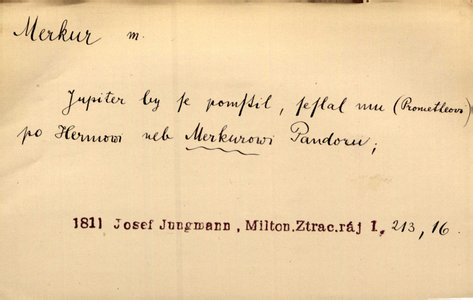 Merkur m.
Jupiter by se pomſtil, ſeſlal mu (Prometheovi)
po Hermowi neb Merkurowi Pandoru;
1811 Josef Jungmann, Milton.Ztrac.ráj I, 213, 16.